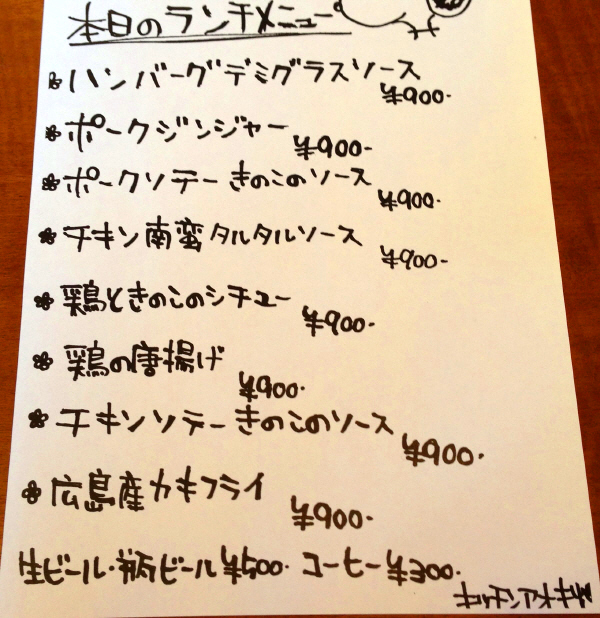 本日のランチメニュー
ハンバーグデミグラスソース
¥900-
ポークジンジャー ¥900-
ポークソテー きのこのソース
¥900-
チキン南蛮タルタルソース
¥900-
鶏ときのこのシチュー
¥900-
鶏の唐揚げ
¥900-
チキンソテー きのこのソース
¥900-
広島産カキフライ
¥900-
生ビール・瓶ビール ¥500- コーヒー ¥300-
キッチンアオキ